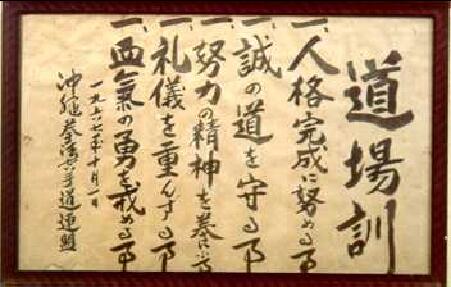 道場訓
一、人格完成に努める事
一、誠の道を守る事
一、努力の精神を養ふ事
一、礼儀を重んずる事
一、血氣の勇を戒める事
一九六七年十月一日
沖縄拳法空手道連盟